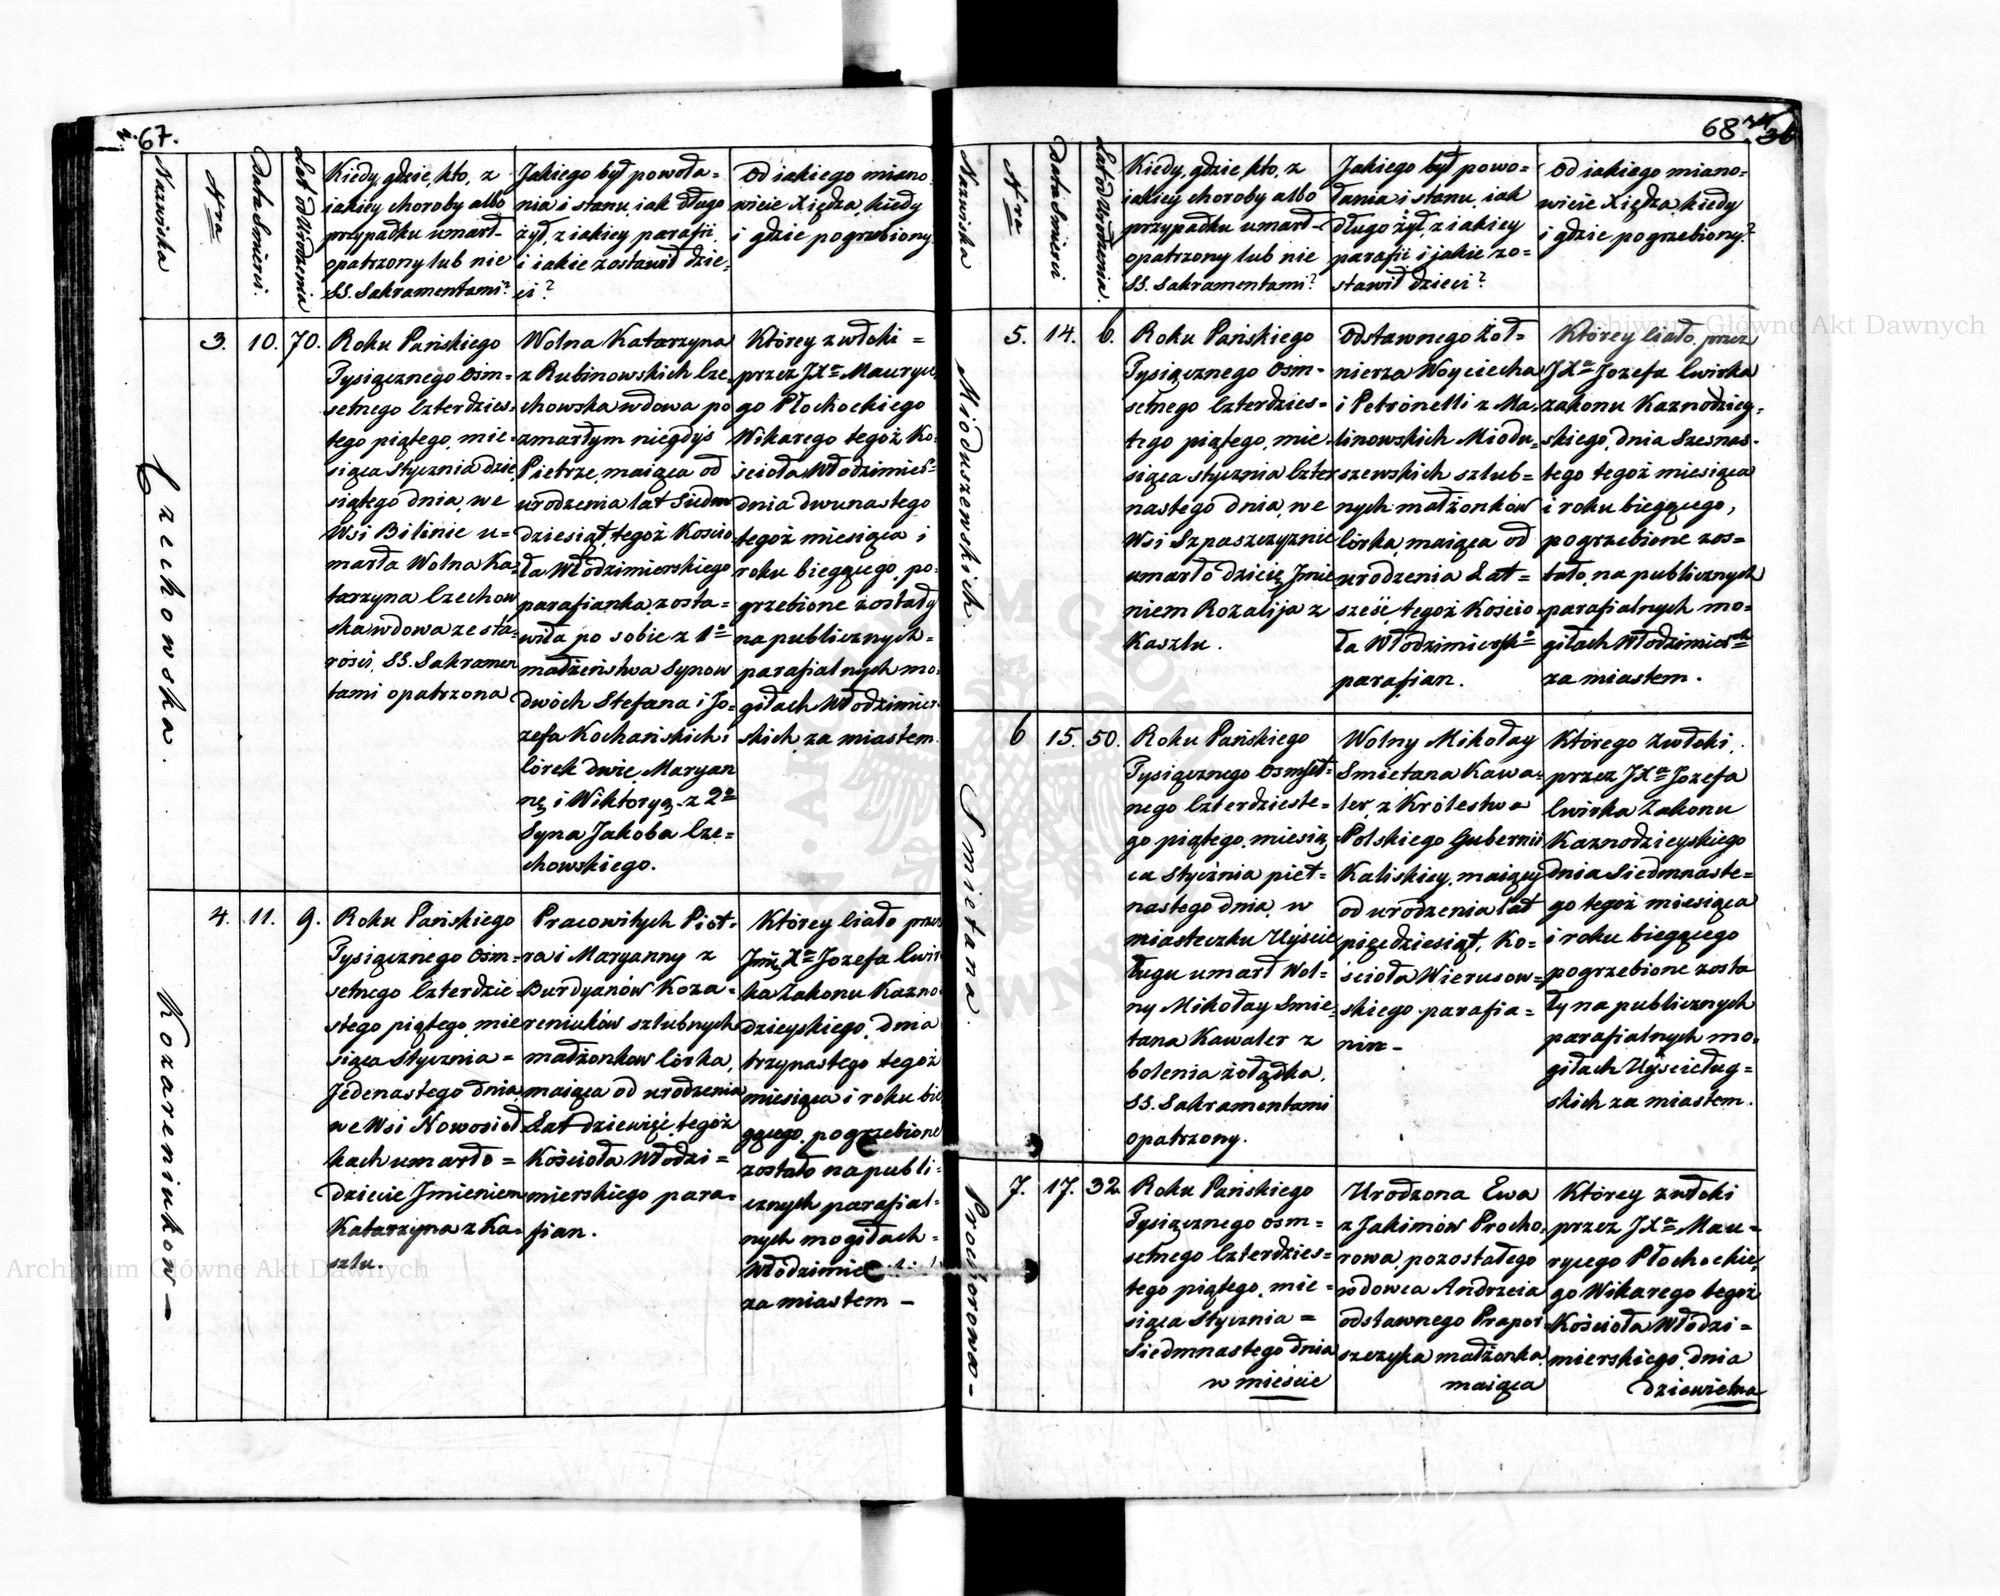 67.
Nazwiska
Nra
Data Śmierci.
Lat od Urodzenia
Kiedy, gdzie, kto, z
iakiey choroby albo
przypadku umarł-
opatrzony lub nie
SS. Sakramentami?
Jakiego był powoła=
nia i stanu, iak długo
żył, z iakiey parafii,
i iakie zostawił dzie=
ci?
Od iakiego miano=
wicie Xiędza, kiedy
i gdzie pogrzebiony.
Czechowska.
3.
10.
70.
Roku Pańskiego
Tysiącznego Osm=
setnego Czterdzies=
tego piątego, mie=
siąca Stycznia dzie
siątego dnia, we
Wsi Bilinie u=
marła Wolna Ka=
tarzyna Czechow
ska wdowa ze sta=
rości, SS. Sakramen
tami opatrzona
Wolna Katarzyna
z Rubinowskich Cze=
chowska wdowa po
zmarłym niegdyś
Pietrze, maiąca od
urodzenia lat Siedm
dziesiąt, tegoż Kościo
ła Włodzimierskiego
parafianka, zosta=
wiła po sobie z 1o
małżeństwa Synow
dwóch Stefana i Jo=
zefa Kochańskich i
Córek dwie Maryan
nę i Wiktoryą. z 2o
Syna Jakoba Cze=
chowskiego.
Którey zwłoki =
przez JXa Maurycę
go Płochockiego
Wikarego tegoż Ko=
ścioła Włodzimier=
dnia dwunastego
tegoż miesiąca i
roku biegącego, po=
grzebione zostały
na publicznych=
parafialnych mo=
giłach Włodzimier=
skich za miastem.
Kozareniukow -
4.
11.
9.
Roku Pańskiego
Tysiącznego Osm=
setnego Czterdzie=
stego piątego, mie
siąca Stycznia =
Jedenastego dnia,
we Wsi Nowosioł
kach umarło =
dziecie Jmieniem
Katarzyna z Ka=
szlu.
Pracowitych Piot=
ra i Maryanny z
Burdyanów Koza=
reniuków szlubnych
małżonkow Córka,
maiąca od urodzenia
Lat dziewięć, tegoż
Kościoła Włodzi=
mierskiego para=
fian.
Którey Ciało przez
Jmć Xa Jozefa Cwir
ka Zakonu Kazno=
dzieyskiego, dnia
trzynastego tegoż
miesiąca i roku bie
gącego, pogrzebione
zostało na publi=
cznych parafial=
nych mogiłach =
Włodzimie
za miastem -
68
36
Nazwiska
Nra
Data Śmierci
Lat od Urodzenia.
Kiedy, gdzie, kto, z
iakiey choroby albo
przypadku umarł-
opatrzony lub nie
SS. Sakramentami?
Jakiego był powo=
łania i stanu, iak
długo żył, z iakiey
parafii i jakie zo=
stawił dzieci?
Od iakiego miano=
wicie Xiędza, kiedy
i gdzie pogrzebiony?
Mioduszewskich.
5.
14.
6.
Roku Pańskiego
Tysiącznego Osm-
setnego Czterdzies=
tego piątego, mie=
siąca stycznia Czter
nastego dnia, we
Wsi Szpaszczyznie
umarło dziecię Jmie
niem Rozalija z
Kaszlu.
Odstawnego Żoł=
nierza Woyciecha
i Petronelli z Ma=
linowskich Miodu=
szewskich szlub=
nych małżonków
Córka, maiąca od
urodzenia Lat =
sześć, tegoż Kościo=
ła Włodzimiersko
parafian.
Którey Ciało, przez
JXa Jozefa Cwirka
zakonu Kaznodziey=
skiego, dnia Szesnas-
tego tegoż miesiąca
i roku biegącego,
pogrzebione zos=
tało, na publicznych
parafialnych mo=
giłach Włodzimiersch
za miastem.
Smietana.
6
15.
50.
Roku Pańskiego
Tysiącznego Osmset=
nego Czterdzieste=
go piątego, miesią
ca Stycznia pięt=
nastego dnia, w
miasteczku Uyście
ługu umarł Wol=
ny Mikołay Smie=
tana Kawaler z
bolenia żołądka,
SS. Sakramentami
opatrzony.
Wolny Mikołay
Smietana Kawa=
ler, z Królestwa
Polskiego Gubernii
Kaliskiey, maiący
od urodzenia lat
pięćdziesiąt, Ko=
ścioła Wierusow=
skiego parafia=
nin -
Którego Zwłoki,
przez JXa Jozefa
Cwirka Zakonu
Kaznodzieyskiego
dnia Siedmnaste=
go tegoż miesiąca
i roku biegącego
pogrzebione zosta
ły na publicznych
parafialnych mo=
giłach Uyścieług=
skich za miastem.
Prochorowo-
7.
17.
32.
Roku Pańskiego
Tysiącznego osm=
setnego Czterdzies=
tego piątego, mie=
siąca Stycznia =
Siedmnastego dnia
w mieście
Urodzona Ewa
z Jakimów Procho=
rowa, pozostałego
wdowca Andrzeia
odstawnego Prapor
szczyka małżonka,
maiąca
Którey zwłoki
przez JXa Mau=
rycego Płochockie=
go Wikarego tegoż
Kościoła Włodzi=
mierskiego, dnia
dziewietna
Archiwum Główne Akt Dawnych
Archiwum Główne Akt Dawnych